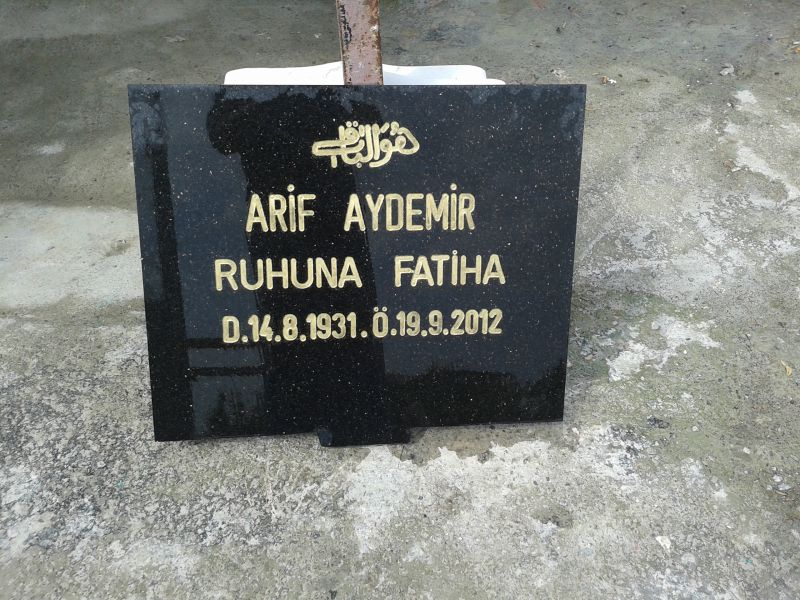 هو الباقي
ARİF AYDEMİR
RUHUNA FATİHA
D.14.8.1931.Ö.19.9.2012